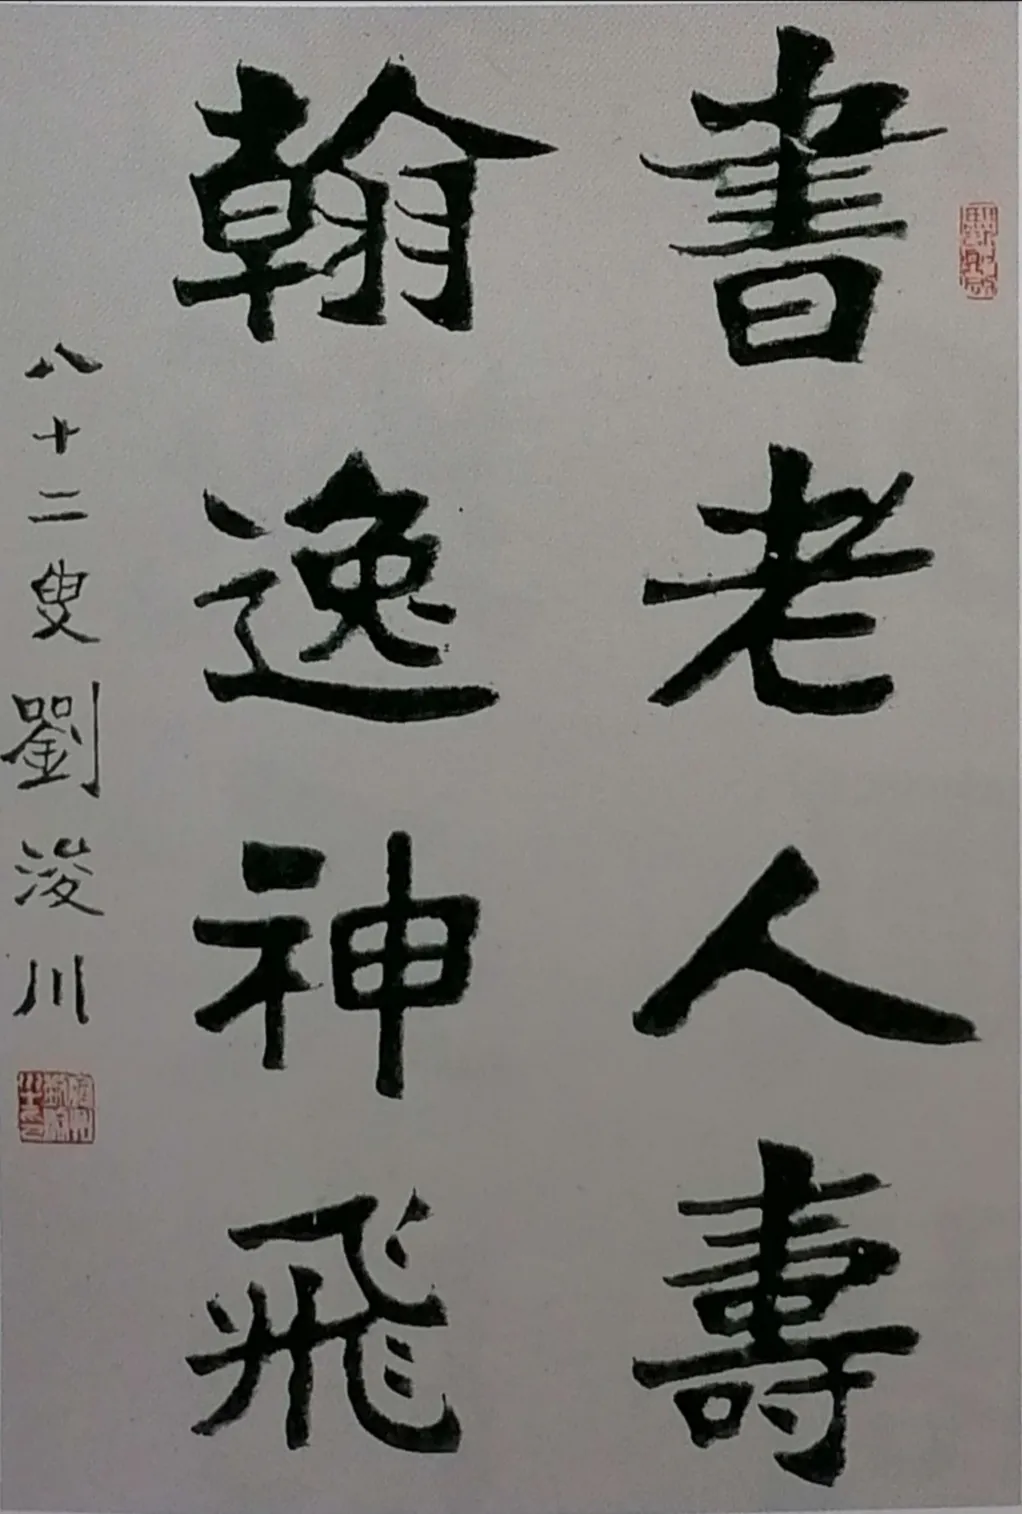 書老人壽
翰逸神飛
八十二叟劉浚川